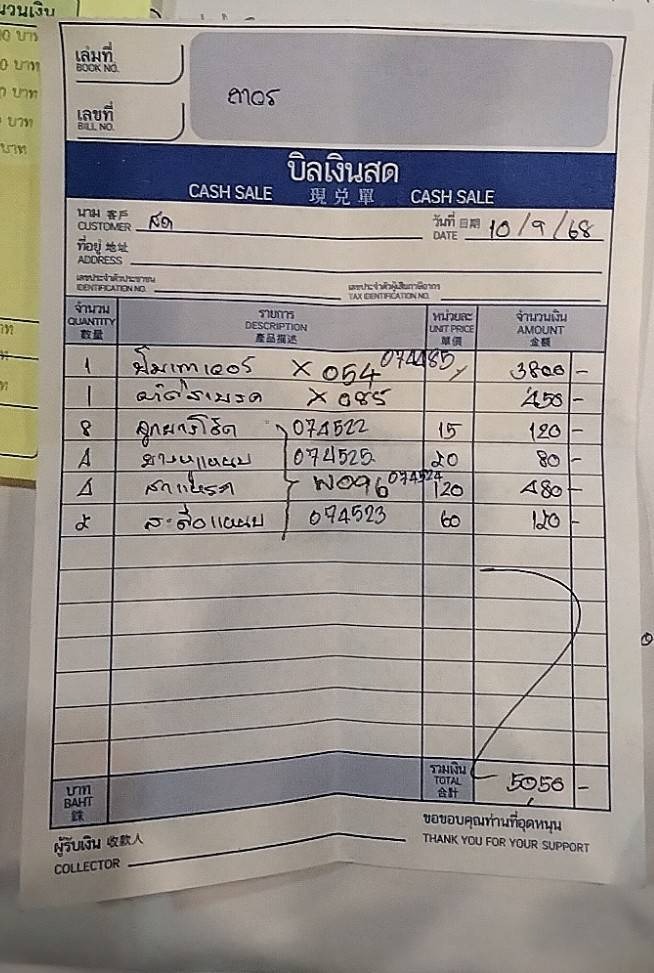 เล่มที่
BOOK NO.
ถาวร
เลขที่
BILL NO.
บิลเงินสด
CASH SALE 現兌單 CASH SALE
นาม 客戶
CUSTOMER สด
วันที่ 日期
DATE 10/9/68
ที่อยู่ 地址
ADDRESS
เลขประจำตัวประชาชน
IDENTIFICATION NO.
เลขประจำตัวผู้เสียภาษีอากร
TAX IDENTIFICATION NO.
จำนวน รายการ หน่วยละ จำนวนเงิน
QUANTITY DESCRIPTION UNIT PRICE AMOUNT
數量 產品描述 單價 金額
1 X 054 074485 3800 -
1 X 085 450 -
8 ลูกยางโช๊ค 074522 15 120 -
4 074525 20 80 -
4 W096 074524 120 480 -
2 สะดือแหนบ 074523 60 120 -
บาท
BAHT
銖
รวมเงิน
TOTAL
合計
5050 -
ผู้รับเงิน 收款人
COLLECTOR
ขอขอบคุณท่านที่อุดหนุน
THANK YOU FOR YOUR SUPPORT